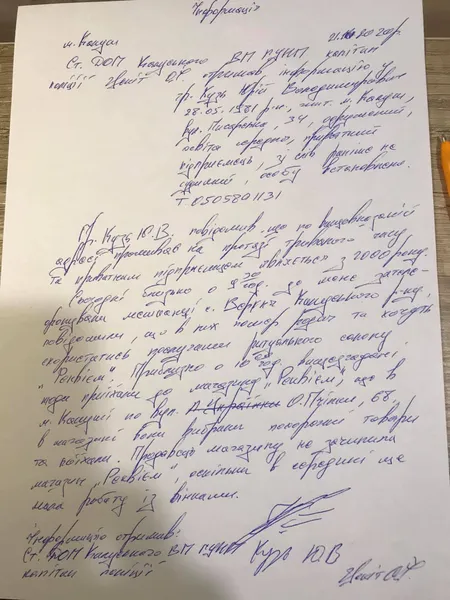 Інформація
м. Калуш
21.10.2020р
Ст. ДОМ Калуського ВМ ГУНП капітан
поліції Звоніт О.Р. отримав інформацію у
гр. Кузь Юрій Володимирович
28.05.1981 р.н., жит. м. Калуш,
вул. Писарська, 34, одружений,
освіта середня, приватний
підприємець, зі слів раніше не
судимий, особу встановлено.
Т. 0505801131
Гр. Кузь Ю.В. повідомив, що по вищевказаній
адресі проживає на протязі тривалого часу
та приватним підприємцем являється з 2000 року.
Сьогодні близько о 9 30 год. до мене зателе-
фонували мешканці с. Калуського р-ну,
повідомили, що в них помер родич та хочуть
скористатись послугами ритуального салону
"Реквієм". Приблизно о 10 00 год. вищезгадані
люди приїхали до магазину "Реквієм", що в
м. Калуші по вул. О. Пчілки, 6б,
в магазині вони вибрали похоронні товари
та поїхали. Продавець магазину не зачинила
магазин "Реквієм", оскільки в середині ще
мала роботу із вінками.
Інформацію отримав:
Ст. ДОМ Калуського ВМ ГУНП Кузь Ю.В
капітан поліції